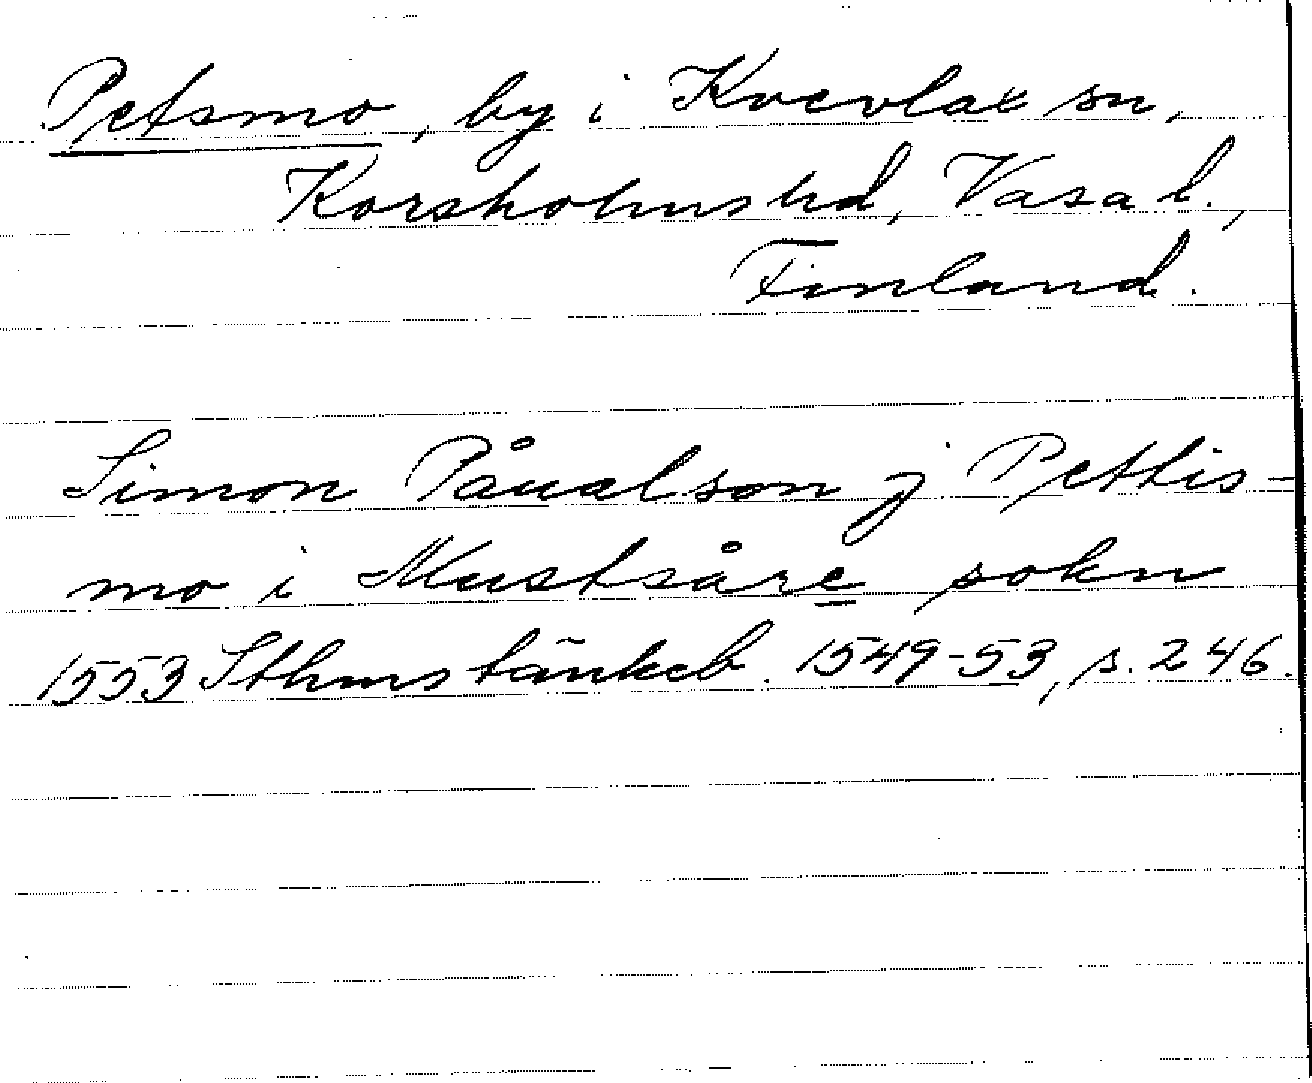 Petsmo, by i Kvevlax sn,
Korsholms hd, Vasa l.,
Finland.
Simon Påualson j Pettis-
mo i Mustsåre sokn
1553 Sthms tänkeb. 1549-53, s. 246.